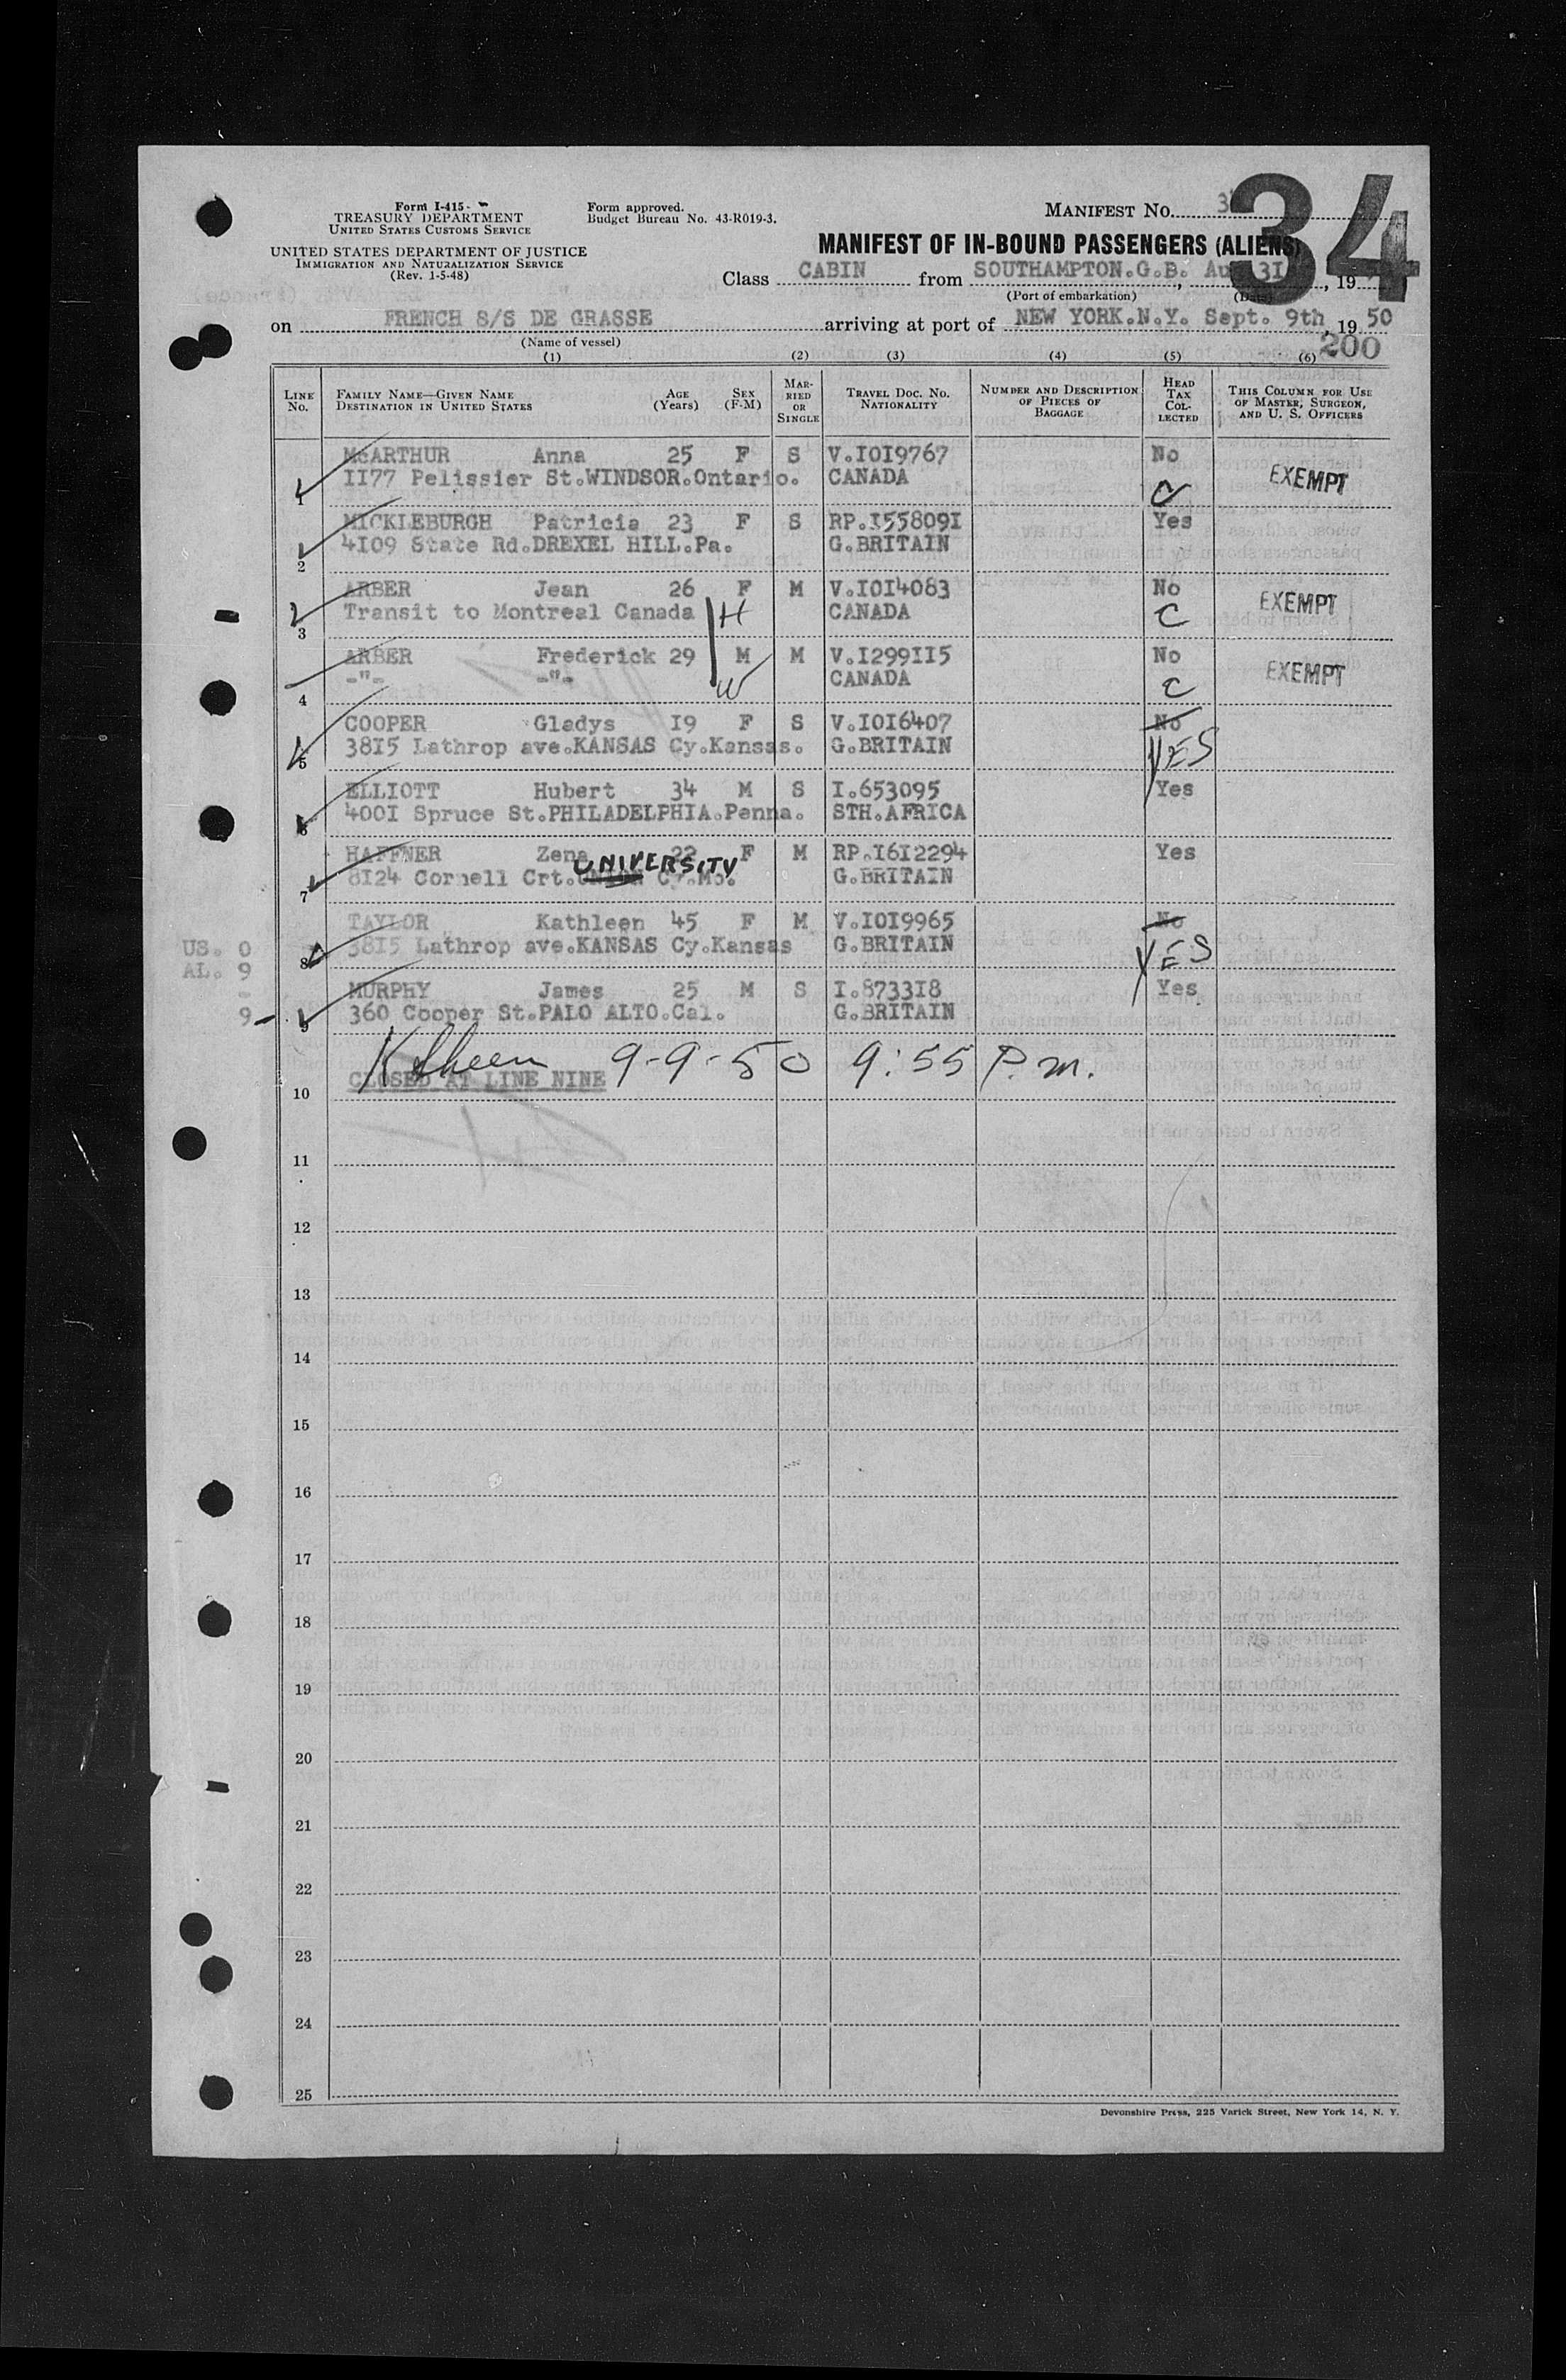 Form I-415-
TREASURY DEPARTMENT
UNITED STATES CUSTOMS SERVICE
UNITED STATES DEPARTMENT OF JUSTICE
IMMIGRATION AND NATURALIZATION SERVICE
(Rev. 1-5-48)
Form approved.
Budget Bureau No. 43-R019-3.
MANIFEST No. 34
34
MANIFEST OF IN-BOUND PASSENGERS (ALIENS)
Class CABIN from SOUTHAMPTON.G.B. 3I, 19
(Port of embarkation) (Date)
on FRENCH S/S DE GRASSE arriving at port of NEW YORK.N.Y. Sept. 9th, 19 50
(Name of vessel)
200
(1) (2) (3) (4) (5) (6)
LINE No. FAMILY NAME—GIVEN NAME DESTINATION IN UNITED STATES AGE (Years) SEX (F-M) MARRIED OR SINGLE TRAVEL DOC. NO. NATIONALITY NUMBER AND DESCRIPTION OF PIECES OF BAGGAGE HEAD TAX COLLECTED THIS COLUMN FOR USE OF MASTER, SURGEON, AND U. S. OFFICERS
McARTHUR Anna 25 F S V.I0I9767 No
1 II77 Pelissier St.WINDSOR.Ontario. CANADA C EXEMPT
MICKLEBURGH Patricia 23 F S RP.I55809I Yes
2 4I09 State Rd.DREXEL HILL.Pa. G.BRITAIN
ARBER Jean 26 F M V.I0I4083 No
3 Transit to Montreal Canada H CANADA C EXEMPT
ARBER Frederick 29 M M V.I299II5 No
4 -"- -"- W CANADA C EXEMPT
COOPER Gladys I9 F S V.I0I6407 No
5 38I5 Lathrop ave.KANSAS Cy.Kansas. G.BRITAIN YES
ELLIOTT Hubert 34 M S I.653095 Yes
6 400I Spruce St.PHILADELPHIA.Penna. STH.AFRICA
HAFFNER Zena 22 F M RP.I6I2294 Yes
UNIVERSITY
7 8I24 Cornell Crt.UNION Cy.Mo. G.BRITAIN
TAYLOR Kathleen 45 F M V.I0I9965 No
8 38I5 Lathrop ave.KANSAS Cy.Kansas G.BRITAIN YES
US. 0
AL. 9
-
9
MURPHY James 25 M S I.8733I8 Yes
9 360 Cooper St.PALO ALTO.Cal. G.BRITAIN
9-9-50 9:55 P.m.
10 CLOSED AT LINE NINE
11
12
13
14
15
16
17
18
19
20
21
22
23
24
25
Devonshire Press, 225 Varick Street, New York 14, N. Y.